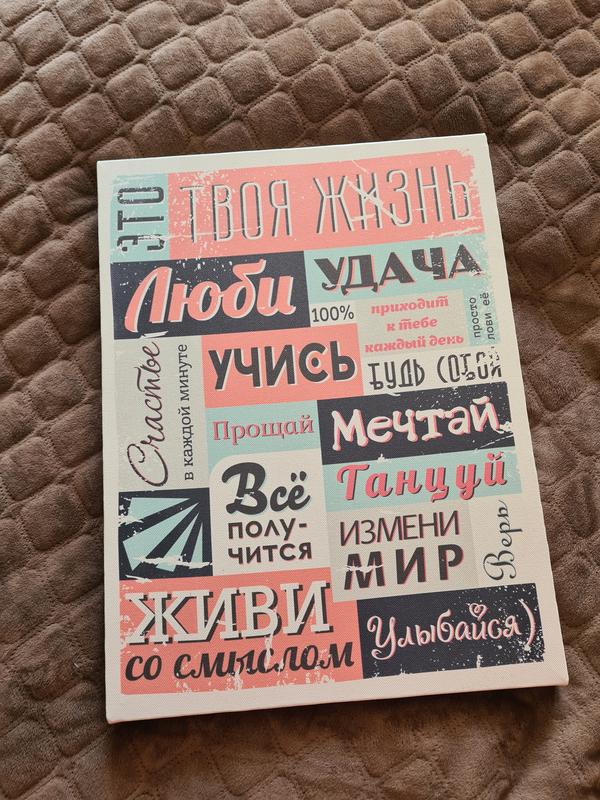 ЭТО
ТВОЯ ЖИЗНЬ
Люби
УДАЧА
100%
приходит
к тебе
каждый день
просто
лови её
Счастье
в каждой минуте
УЧИСЬ
БУДЬ СОБОЙ
Прощай
Мечтай
Танцуй
Всё
полу-
чится
ИЗМЕНИ
МИР
Верь
ЖИВИ
со смыслом
Улыбайся)